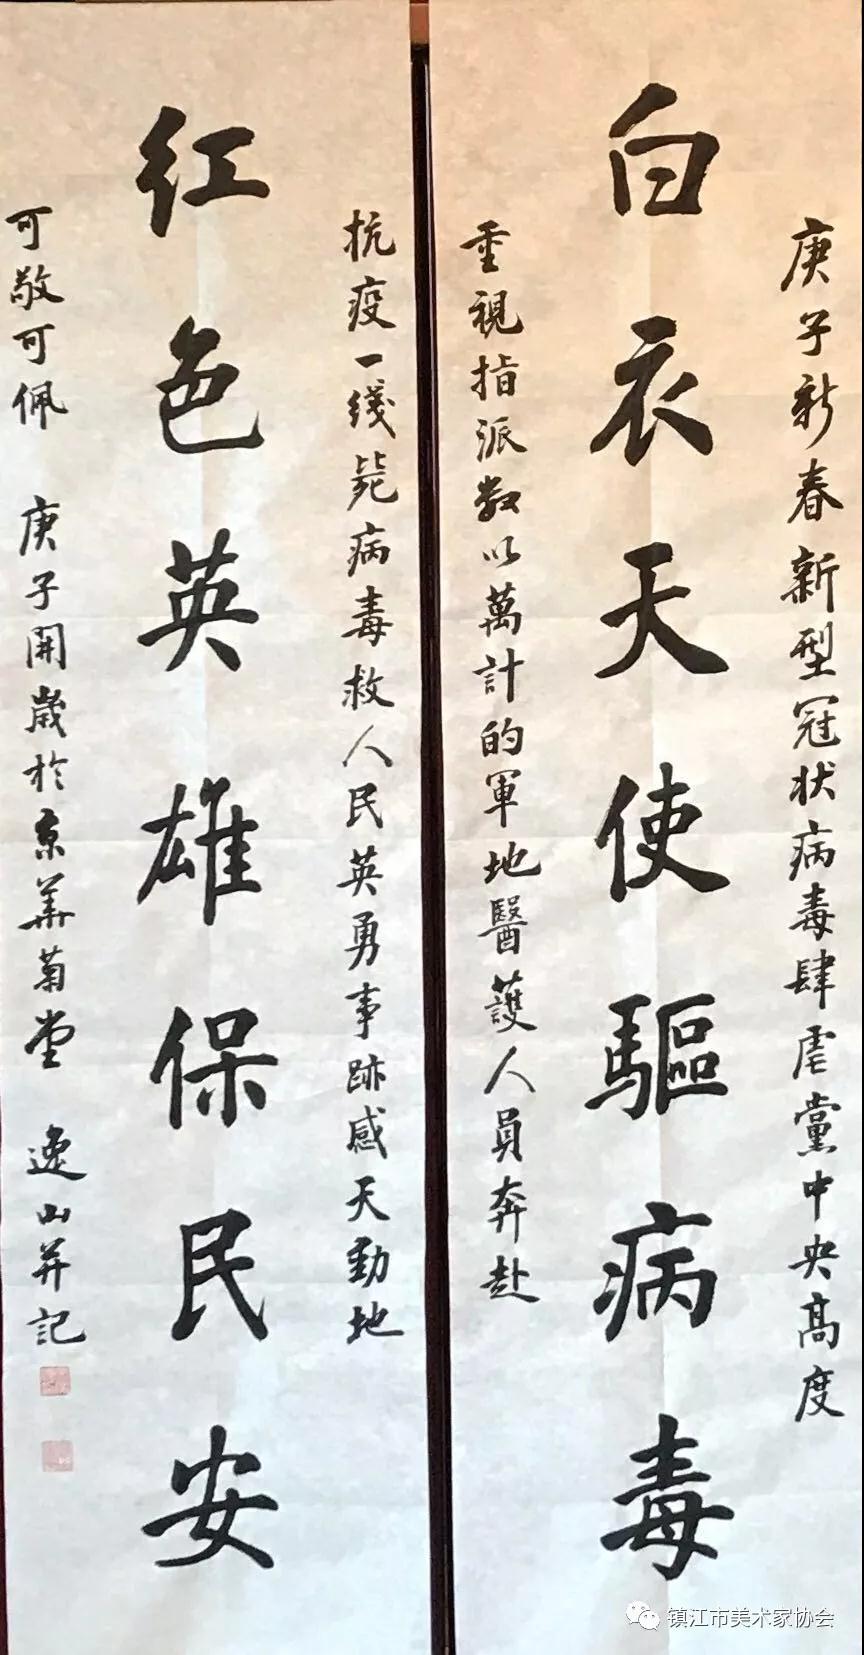 庚子新春新型冠状病毒肆虐黨中央高度
白衣天使驅病毒
重視指派数以萬計的軍地醫護人員奔赴
抗疫一线毙病毒救人民英勇事跡感天動地
红色英雄保民安
可敬可佩 庚子開歲於京華菊堂 逸山并記
镇江市美术家协会